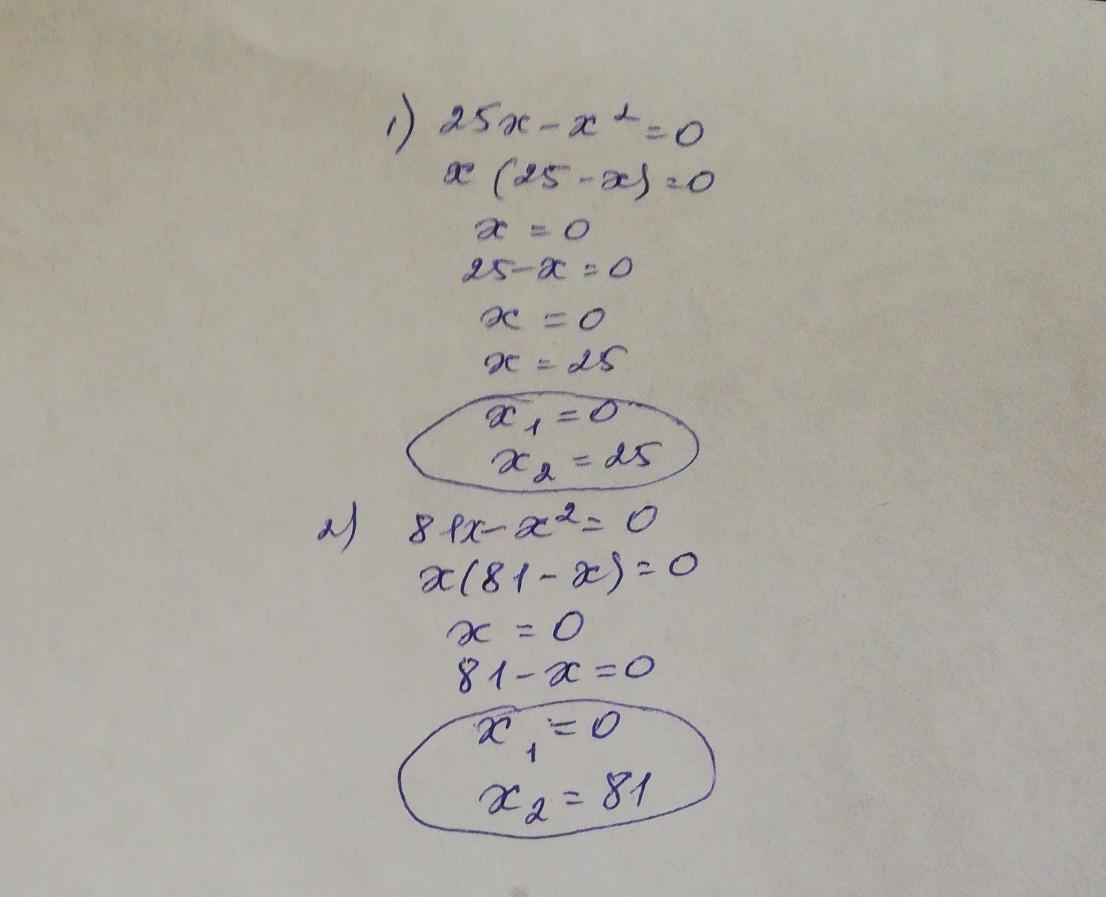 1) 25x-x²=0
x (25-x)=0
x = 0
25-x=0
x = 0
x = 25
x₁=0
x₂=25
2) 81x-x²=0
x(81-x)=0
x = 0
81-x=0
x₁=0
x₂=81